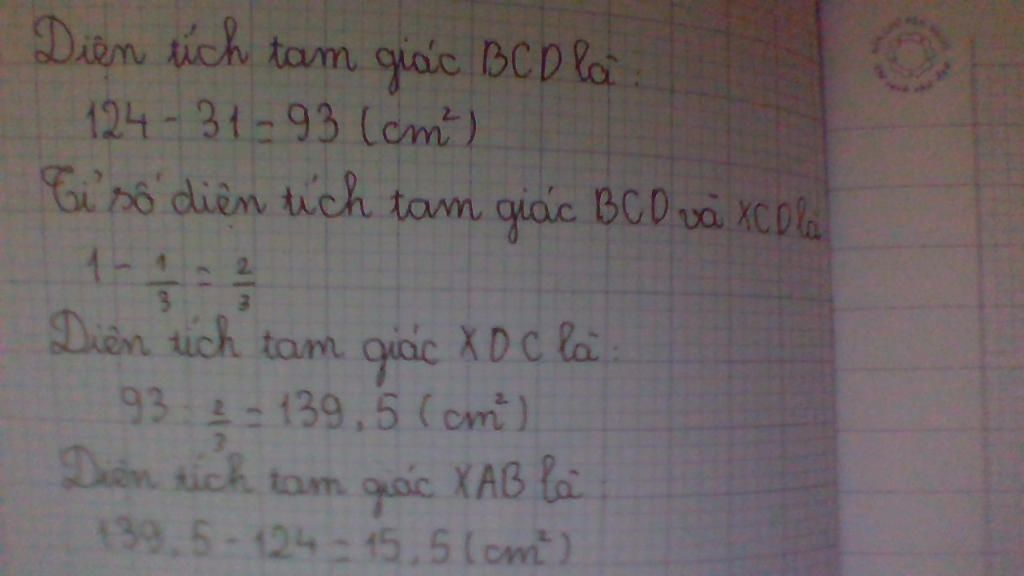 Diện tích tam giác BCD là:
124 - 31 = 93 (cm²)
Tỉ số diện tích tam giác BCD và XCD là
1 - 1/3 = 2/3
Diện tích tam giác XDC là:
93 : 2/3 = 139,5 (cm²)
Diện tích tam giác XAB là
139,5 - 124 = 15,5 (cm²)